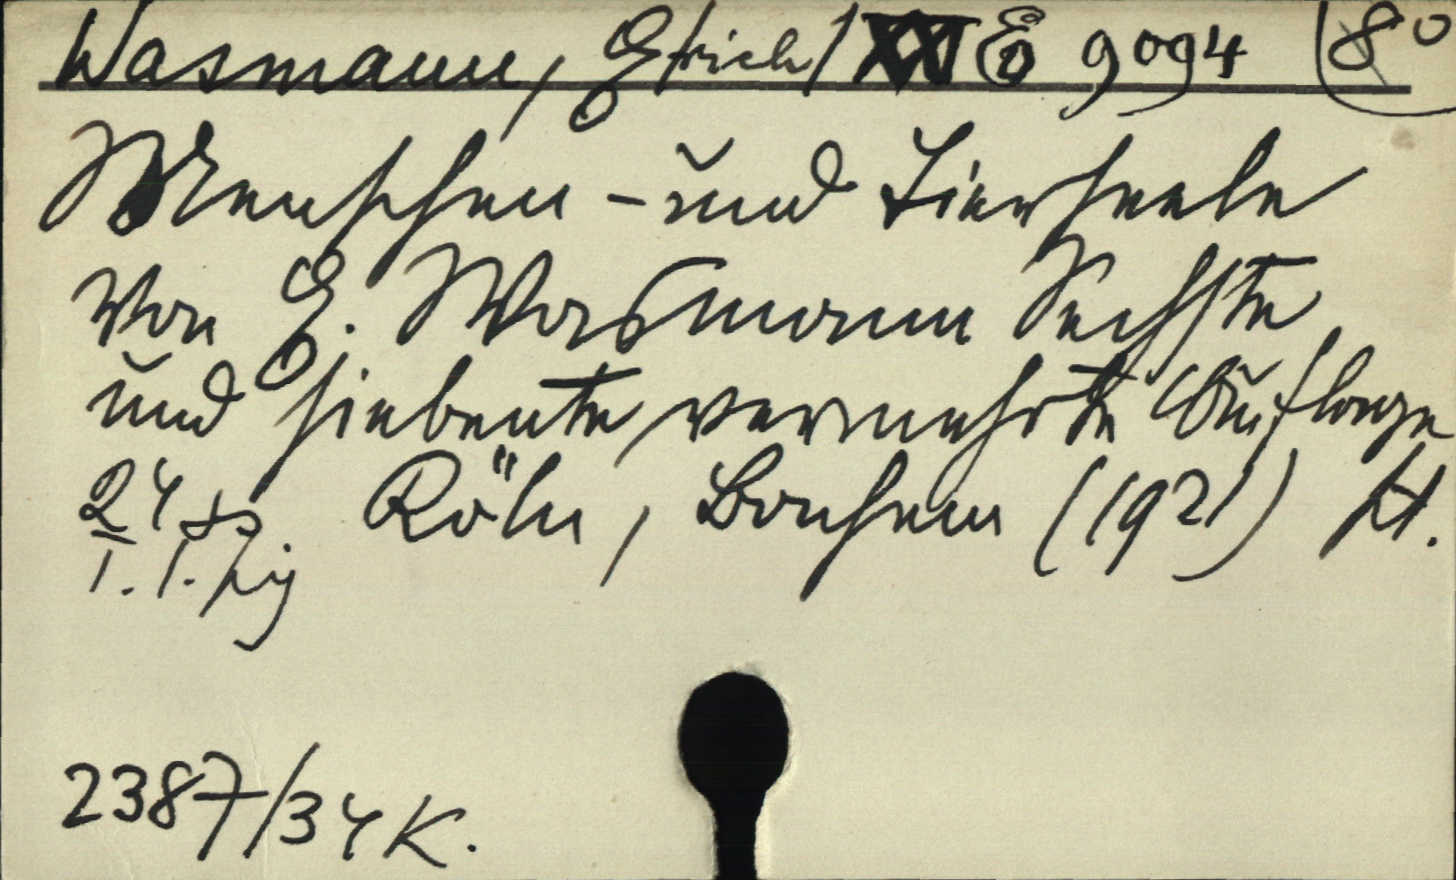 Wasmann, Erich / XXI E 9094 8°
Menschen- und Tierseele
Von E. Wasmann Sechste
und siebente, vermehrte Auflage
Köln, Bachem (1921) H.
2387/34 K.